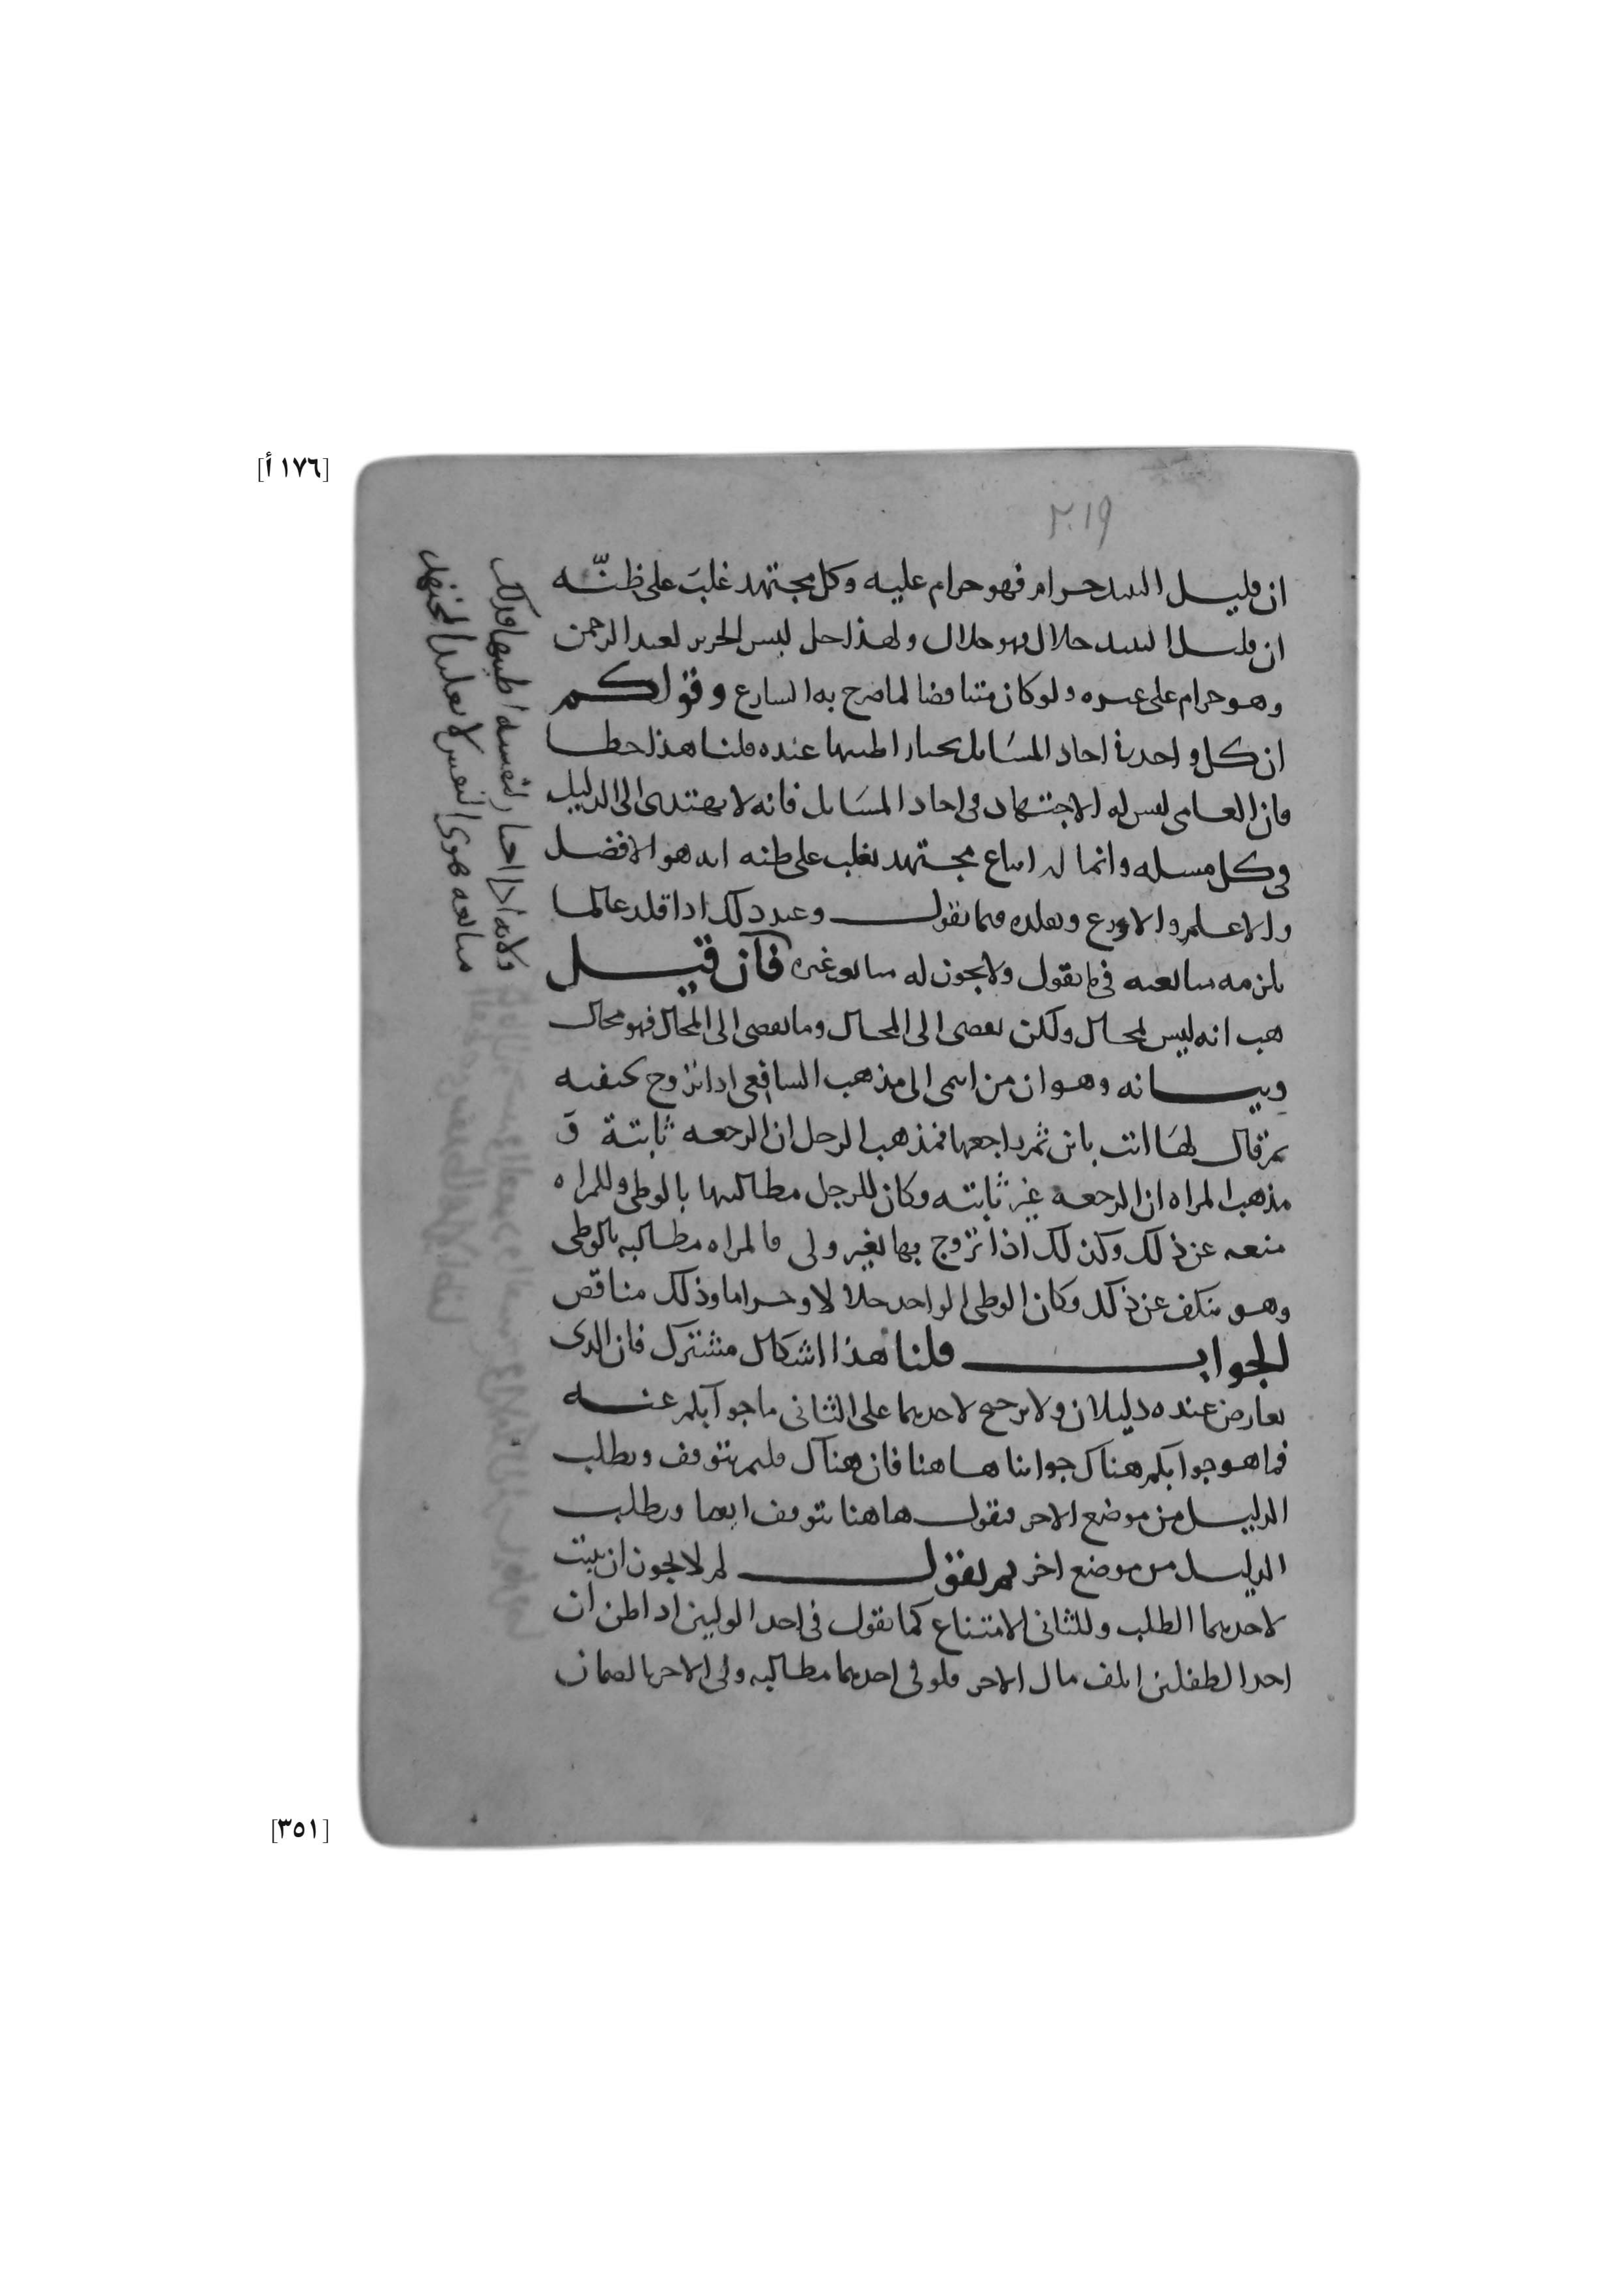 [١٧٦ أ]
٢٠١٩
ان قليل النبيذ حرام فهو حرام عليه وكل مجتهد غلب على ظنّه
ان قليل النبيذ حلال فهو حلال ولهذا حل لبس الحرير لعبد الرحمن
وهو حرام على غيره ولو كان متناقضا لما صرح به الشارع وقولكم
ان كل واحد في احاد المسائل يختار اطيبها عنده قلنا هذا خطا
فان العامي ليس له الاجتهاد في احاد المسائل فانه لا يهتدى الى الدليل
في كل مسله وانما له اتباع مجتهد يغلب على ظنه انه هو الافضل
والاعلم والاورع ويقلده فيما يقول وعند ذلك اذا قلد عالما
يلزمه متابعته فيما يقول ولا يجوز له متابعة غيره فان قيل
هب انه ليس بمحال ولكن يفضى الى المحال وما يفضى الى المحال فهو محال
وبيانه وهو ان من انتمى الى مذهب الشافعي اذا تزوج بحنفيه
ثم قال لها انت باين ثم راجعها فمذهب الرجل ان الرجعه ثابتة و
مذهب المراه ان الرجعه غير ثابته وكان للرجل مطالبتها بالوطى وللمراه
منعه عن ذلك وكذلك اذا تزوج بها بغير ولى فالمراه مطالبه بالوطى
وهو منكف عن ذلك وكان الوطى الواحد حلالا وحراما وذلك متناقض
الجواب قلنا هذا اشكال مشترك فان الذى
تعارض عنده دليلان ولا ترجح لاحدهما على الثانى ما جوابكم عنه
فما هو جوابكم هناك جوابنا هاهنا فان هناك قلتم يتوقف ويطلب
الدليل من موضع الاخر فنقول هاهنا يتوقف ايضا ويطلب
الدليل من موضع اخر ثم نقول لم لا يجوز ان يثبت
لاحدهما الطلب وللثانى الامتناع كما نقول في احد الوليين اذا ظن ان
احد الطفلين اتلف مال الاخر فلولى احدهما مطالبة ولى الاخر بالضمان
ولانه اذا اختار لنفسه اطيبها فذلك
متابعه هوى النفس لا تقليد المجتهد
[٣٥١]